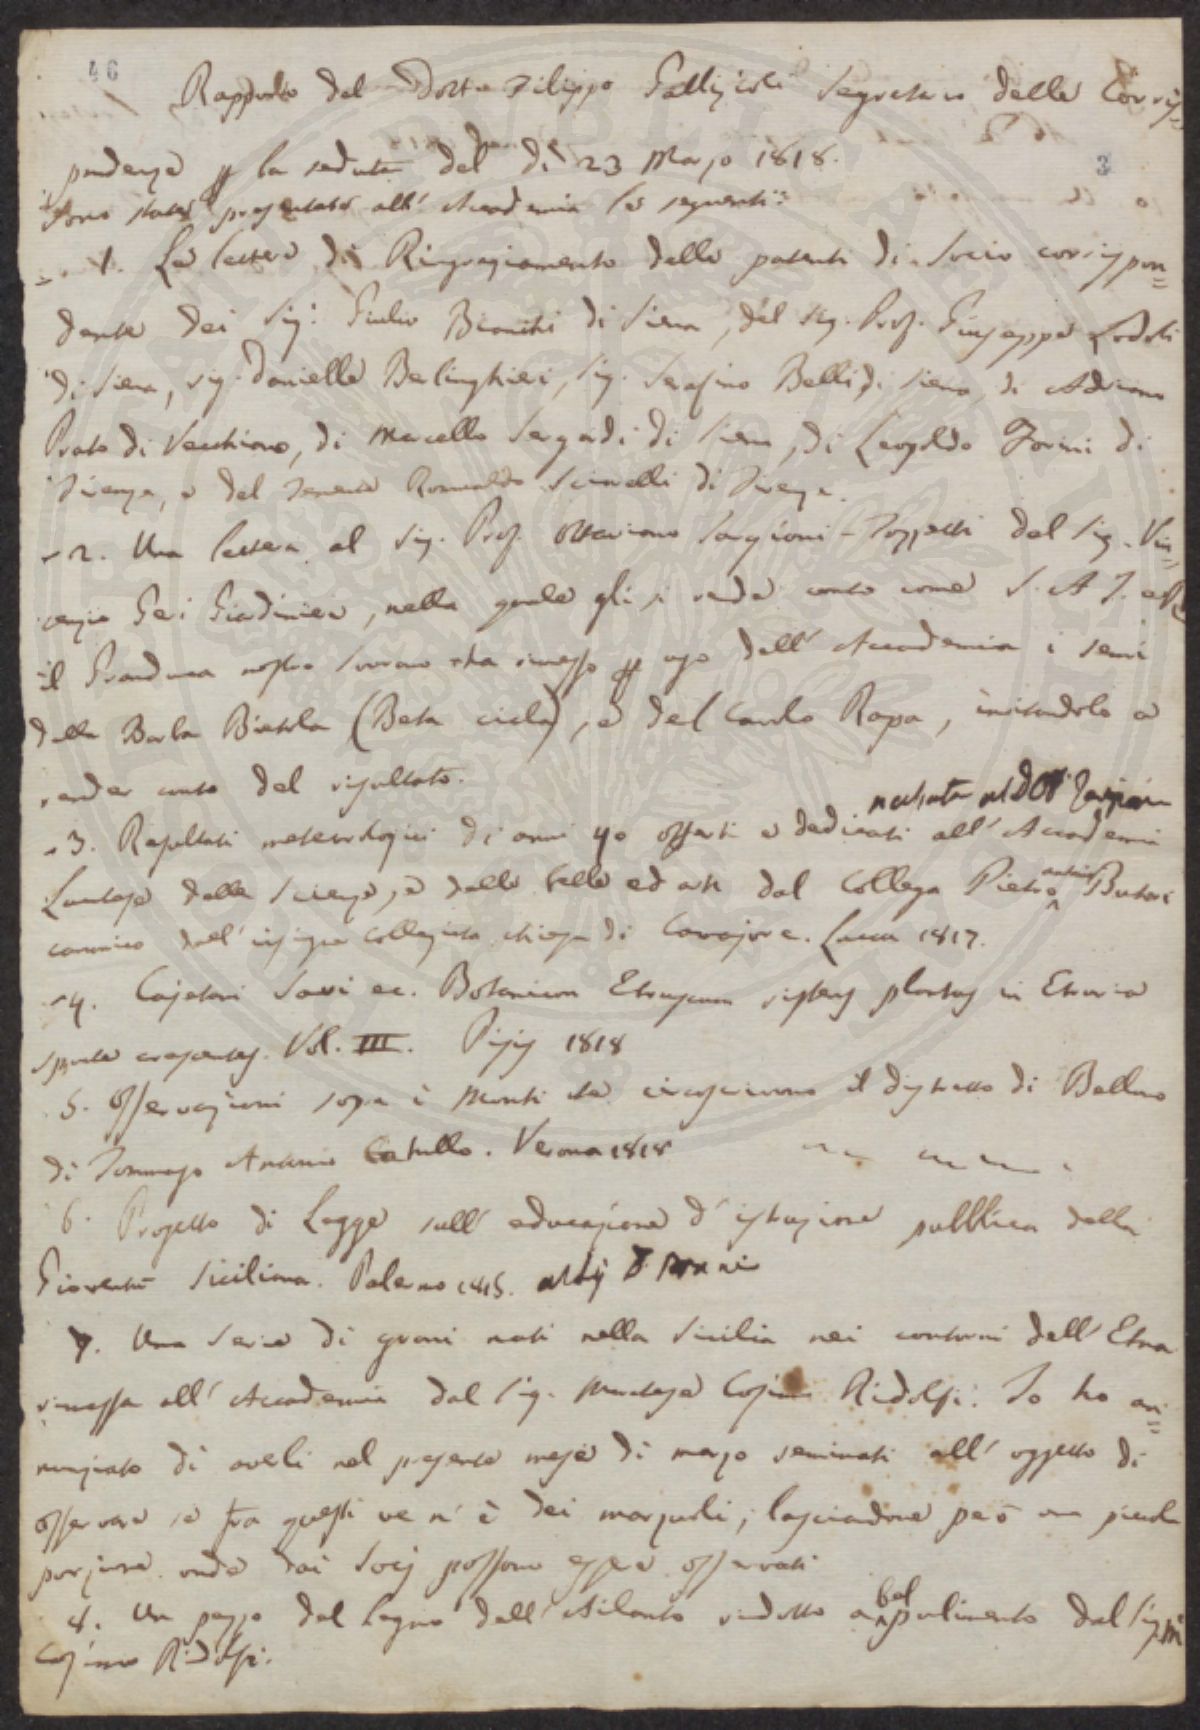 46
Rapporto del Dott. Filippo Gallizioli Segretario delle Corris=
pondenze p la seduta del dì 23 Marzo 1818.
3
Sono state presentate all' Accademia le seguenti:
1. Le lettere di Ringraziamento delle patenti di Socio corrispon=
dente dei Sig: Giulio Bianchi di Siena, del Sig. Prof. Giuseppe Lodoli
di Siena, Sig. Danielle Berlinghieri, Sig. Serafino Belli di Siena, di Adriano
Prato di Vecchiano, di Marcello Sergardi di Siena, di Leopoldo Forini di
Firenze, e del Tenente Romualdo di Firenze.
2. Una lettera al Sig. Prof. Ottaviano Targioni-Tozzetti del Sig. Vin=
cenzio Geri Giardiniere, nella quale gli si rende conto come S. A. I. e R
il Granduca nostro Sovrano ha rimesso p uso dell' Accademia i semi
della Barba Bietola (Beta cicla), e del Cavolo Rapa, invitandolo a
render conto del risultato.
3. Resultati meteorologici di anni 40 offerti e dedicati all' Accademia
Lucchese delle Scienze, e delle belle ed arti dal Collega Pietro Butori
canonico dell' insigne Collegiata chiesa di Camajore. Lucca 1817.
4. Cajetani Savi ec. Botanicon Etruscum sistens plantas in Etruria
sponte crescentes. Vol. III. Pisis 1818
5. Osservazioni sopra i Monti che circoscrivono il distretto di Belluno
di Tommaso Antonio Catullo. Verona 1818
6. Progetto di Legge sull' educazione d' istruzione pubblica della
Gioventù Siciliana. Palermo 1815.
7. Una serie di grani nati nella Sicilia nei contorni dell' Etna
rimessa all' Accademia dal Sig. Marchese Cosimo Ridolfi. Io ho an=
nunziato di averli nel presente mese di marzo seminati all' oggetto di
osservare se fra questi ve n' è dei marzuoli; lasciandone però una piccola
porzione onde dai Socj possono essere osservati
8. Un pezzo del legno dell' Ailanto ridotto a bel pulimento dal Sig. M
Cosimo Ridolfi.